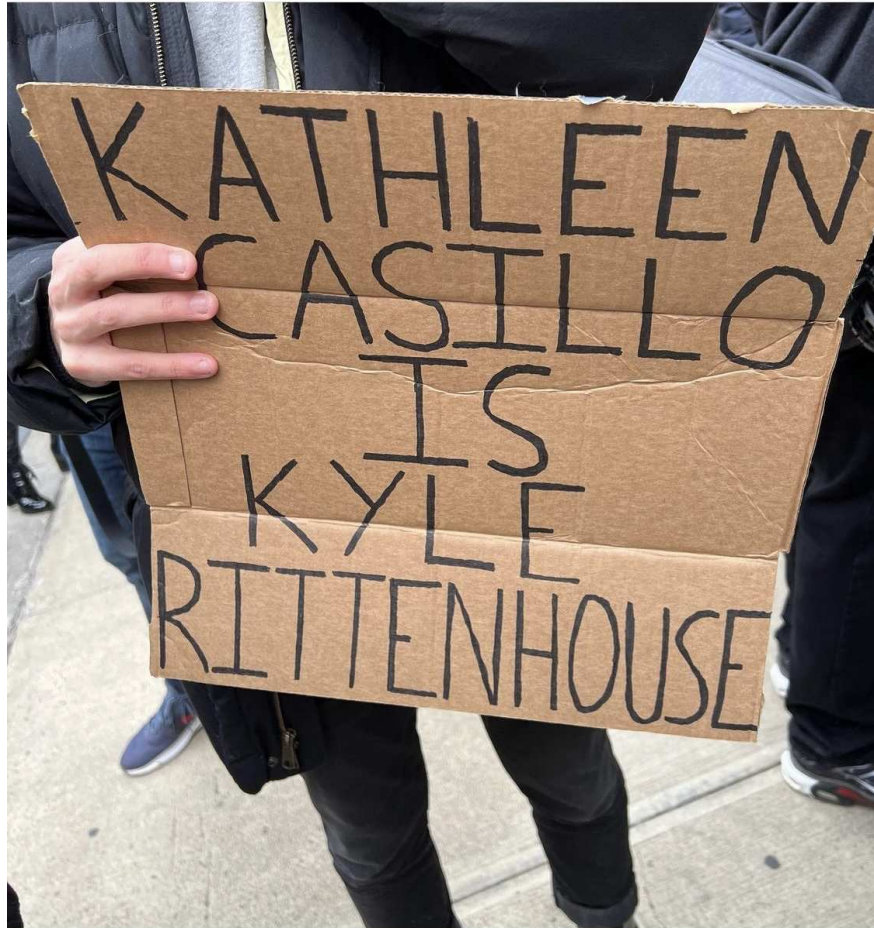 KATHLEEN
CASILLO
IS
KYLE
RITTENHOUSE